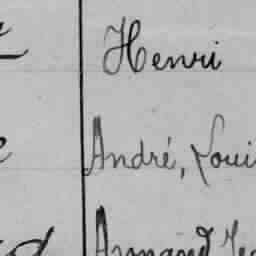 Henri
André, Loui
Armand Je